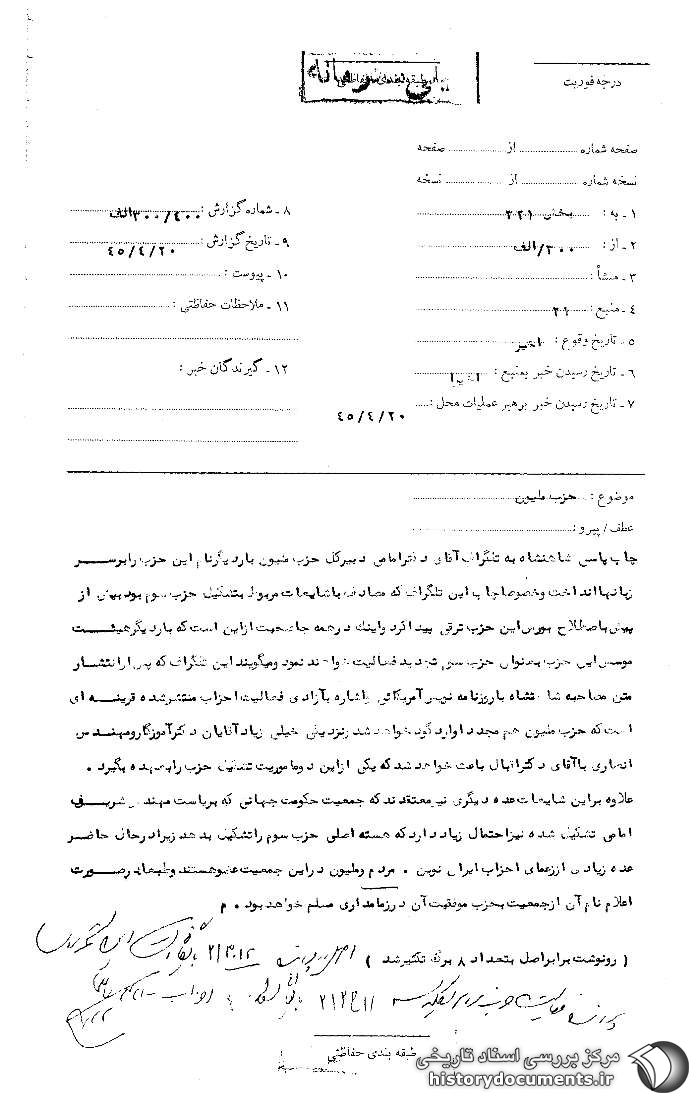 درجه فوریت
صفحه شماره از صفحه
نسخه شماره از نسخه
۱ ـ به : بخش ۳۲۱
۲ ـ از : ۳۰۰/الف
۳ ـ منشأ :
۴ ـ منبع : ۲۹
۵ ـ تاریخ وقوع : اخیر
۶ ـ تاریخ رسیدن خبر بمنبع : اخیرا
۷ ـ تاریخ رسیدن خبر برهبر عملیات محل : ۴۵/۴/۲۰
۸ ـ شماره گزارش : ۳۰۰/۴۰۰ الف
۹ ـ تاریخ گزارش : ۴۵/۴/۲۰
۱۰ ـ پیوست :
۱۱ ـ ملاحظات حفاظتی :
۱۲ ـ گیرندگان خبر :
موضوع : حزب ملیون
عطف / پیرو :
چاپ پاسخ شاهنشاه به تلگراف آقای دکتر امامی دبیرکل حزب ملیون بار دیگر نام این حزب را بر سر
زبانها انداخت و خصوصا چاپ این تلگراف که مصادف با شایعات مربوط بتشکیل حزب سوم بود بیش از
پیش باصطلاح بورس این حزب ترقی پیدا کرد و اینک در همه جا صحبت از این است که بار دیگر هیئت
موسس این حزب بعنوان حزب سوم تجدید فعالیت خواهند نمود و میگویند این تلگراف که پس از انتشار
متن مصاحبه شاهنشاه با روزنامه نویس آمریکائی با اشاره بآزادی فعالیت احزاب منتشر شده قرینه ای
است که حزب ملیون هم مجددا وارد گود خواهد شد و نزدیکی خیلی زیاد آقایان دکتر آموزگار و مهندس
انصاری با آقای دکتر اقبال باعث خواهد شد که یکی از این دو ماموریت تشکیل حزب را بعهده بگیرد .
علاوه بر این شایعات عده دیگری نیز معتقدند که جمعیت حکومت جهانی که بریاست مهندس شریف
امامی تشکیل شده نیز احتمال زیاد دارد که هسته اصلی حزب سوم را تشکیل بدهد زیرا در حال حاضر
عده زیادی از زعمای احزاب ایران نوین . مردم و ملیون در این جمعیت عضو هستند و طبعا در صورت
اعلام نام آن از جمعیت بحزب موفقیت آن در زمامداری مسلم خواهد بود . م
( رونوشت برابر اصل بتعداد ۸ برگ تکثیر شد )
طبقه بندی حفاظتی
مرکز بررسی اسناد تاریخی
historydocuments.ir